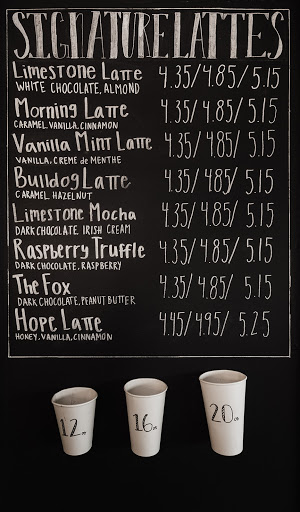 SIGNATURE LATTES
Limestone Latte 4.35/4.85/5.15
WHITE CHOCOLATE, ALMOND
Morning Latte 4.35/4.85/5.15
CARAMEL, VANILLA, CINNAMON
Vanilla Mint Latte 4.35/4.85/5.15
VANILLA, CREME de MENTHE
Bulldog Latte 4.35/4.85/5.15
CARAMEL, HAZELNUT
Limestone Mocha 4.35/4.85/5.15
DARK CHOCOLATE, IRISH CREAM
Raspberry Truffle 4.35/4.85/5.15
DARK CHOCOLATE, RASPBERRY
The Fox 4.35/4.85/5.15
DARK CHOCOLATE, PEANUT BUTTER
Hope Latte 4.45/4.95/5.25
HONEY, VANILLA, CINNAMON
12oz 16oz 20oz